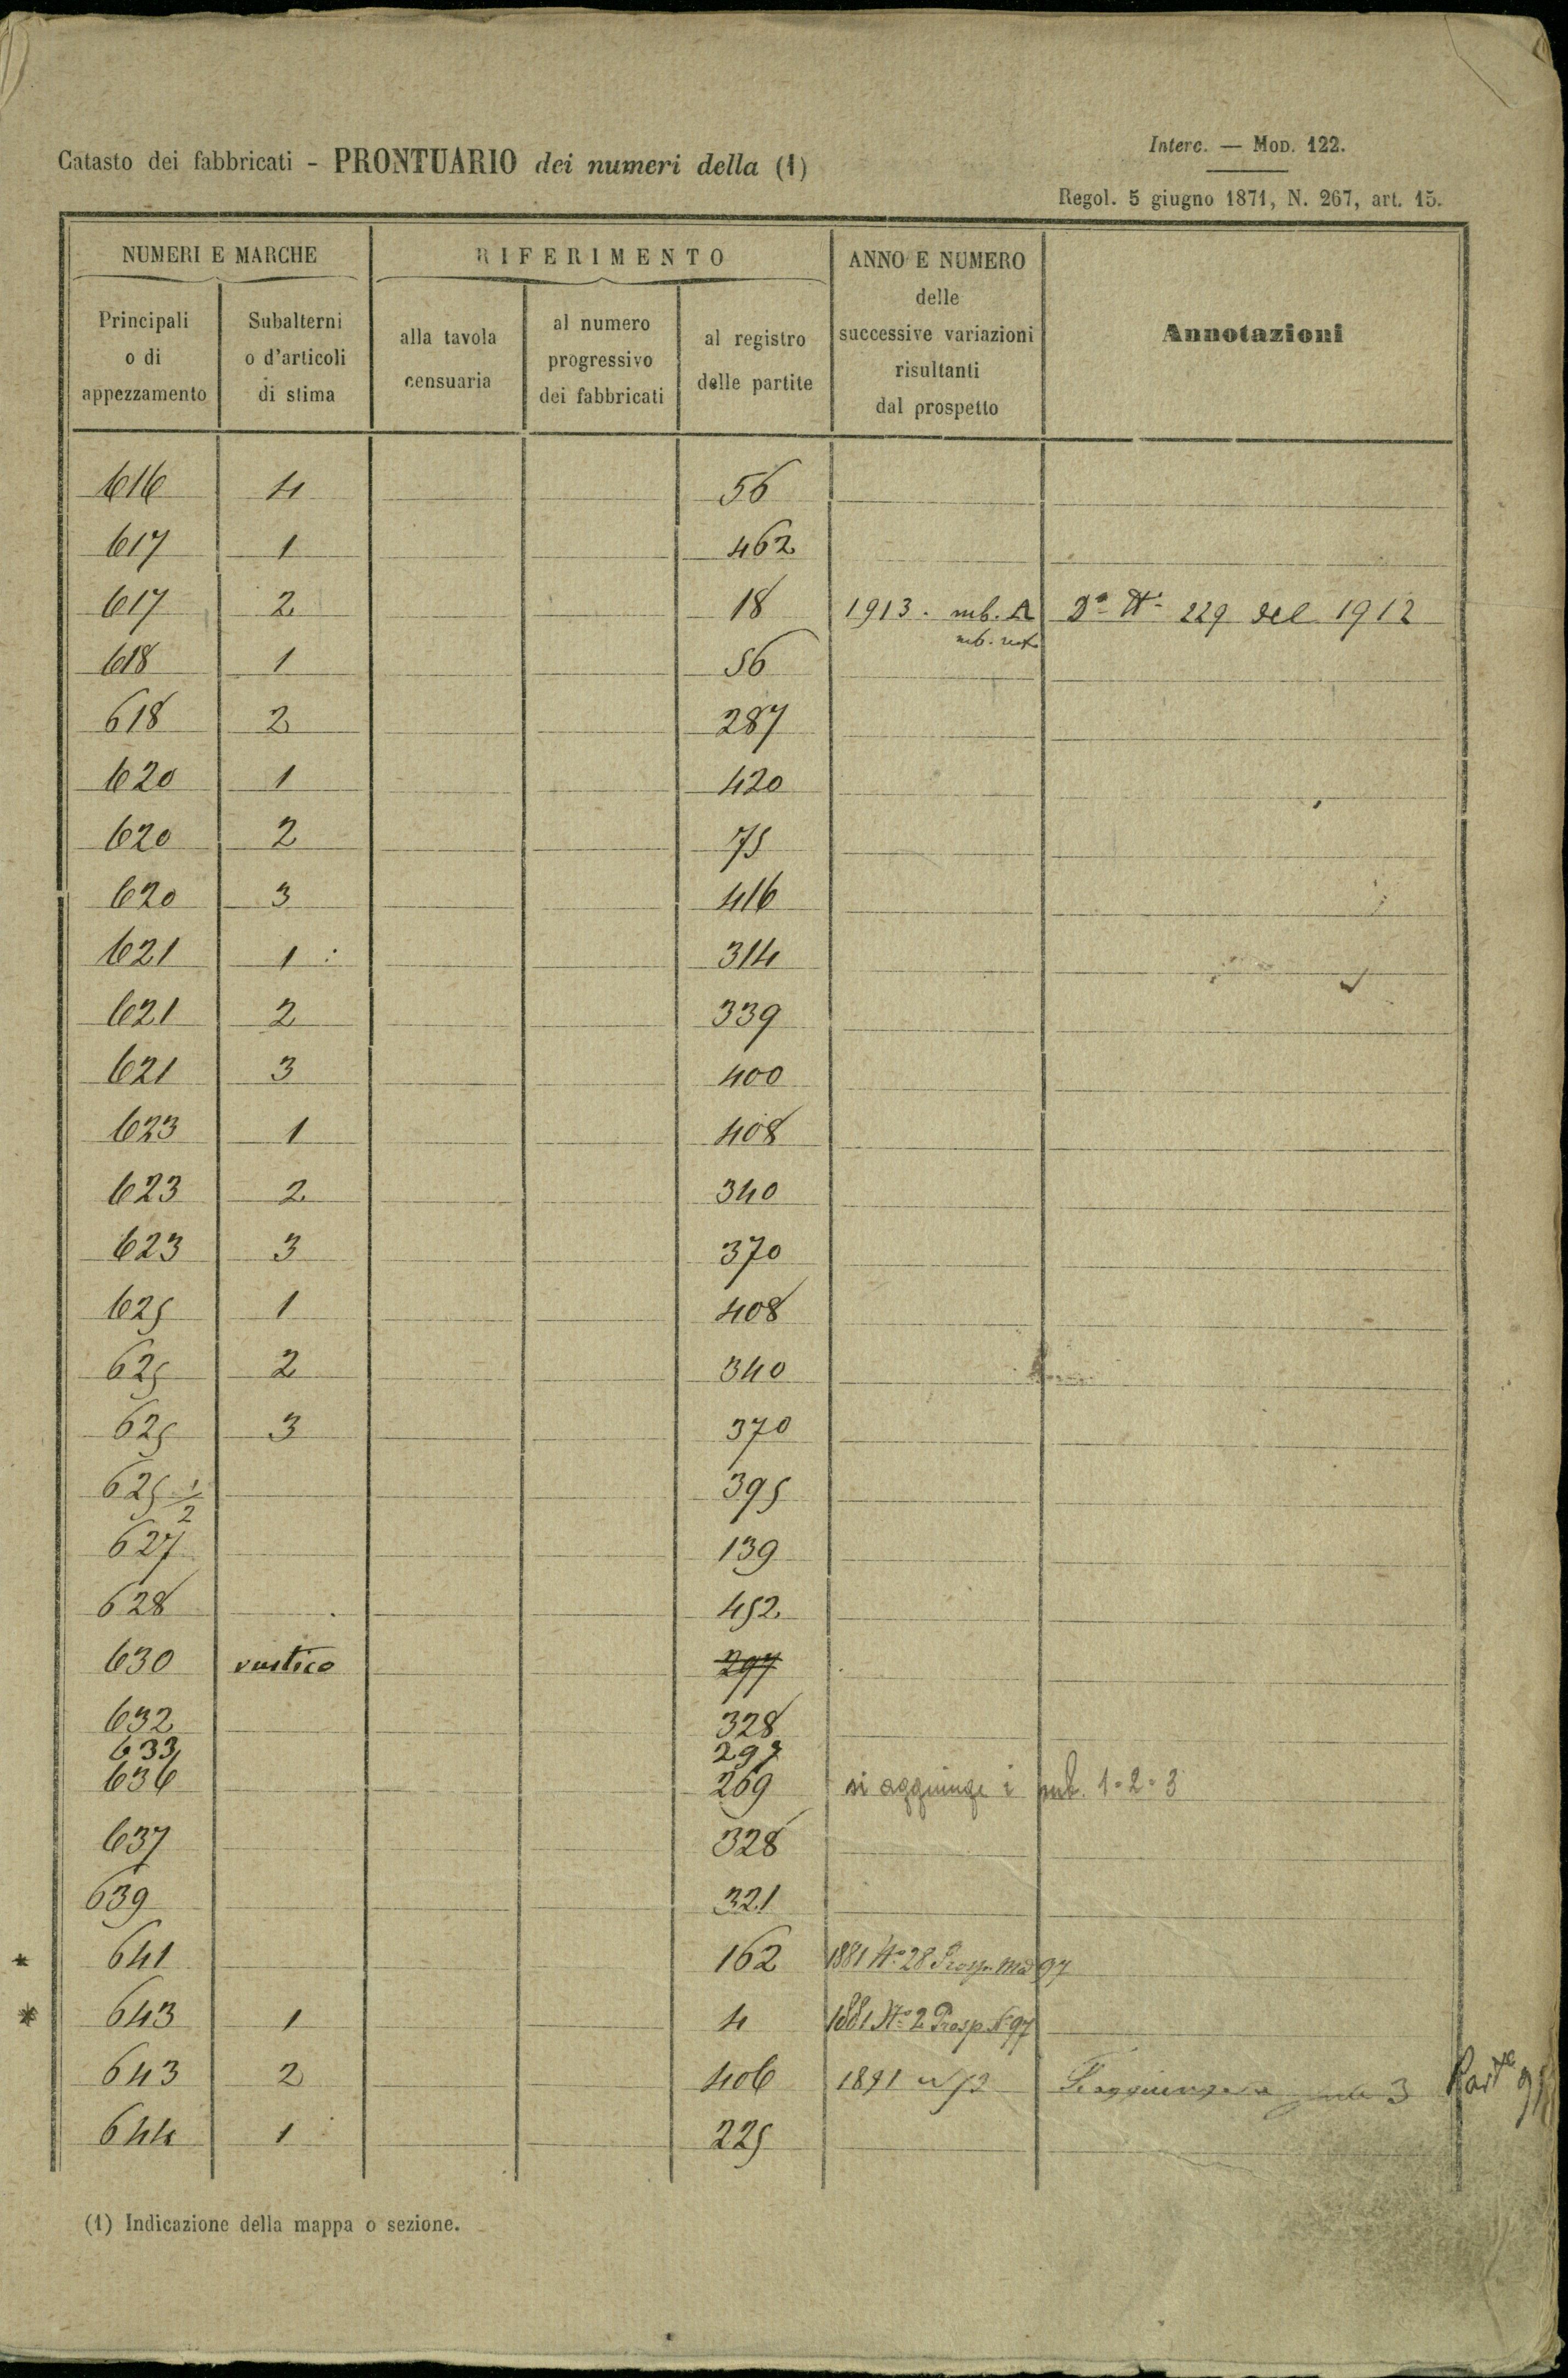 Interc. — Mod. 122.
Catasto dei fabbricati - PRONTUARIO dei numeri della (1)
Regol. 5 giugno 1871, N. 267, art. 15.
NUMERI E MARCHE RIFERIMENTO ANNO E NUMERO delle successive variazioni risultanti dal prospetto Annotazioni
Principali o di appezzamento Subalterni o d'articoli di stima alla tavola censuaria al numero progressivo dei fabbricati al registro delle partite
616 4 56
617 1 462
617 2 18 1913. sub. A Da No 229 del 1912
sub.
618 1 56
618 2 287
620 1 420
620 2 75
620 3 416
621 1 314
621 2 339
621 3 400
623 1 408
623 2 340
623 3 370
625 1 408
625 2 340
625 3 370
625 1/2 395
627 139
628 452
630 rustico 297
632 328
633 297
636 269 si aggiunge i sub. 1-2-3
637 328
639 321
* 641 162 1881 No 28 Prosp. Mod 97
* 643 1 4 1881 No 2 Prosp. N 97
643 2 406 1891 3 Parta
644 1 225
(1) Indicazione della mappa o sezione.